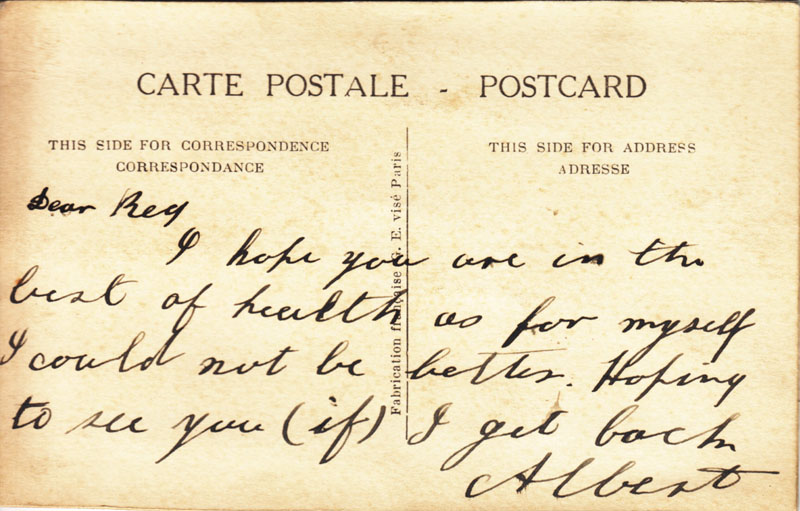 CARTE POSTALE - POSTCARD
THIS SIDE FOR CORRESPONDENCE
CORRESPONDANCE
THIS SIDE FOR ADDRESS
ADRESSE
Fabrication française E. visé Paris
Dear Reg
I hope you are in the
best of health as for myself
I could not be better. Hoping
to see you (if) I get back
Albert